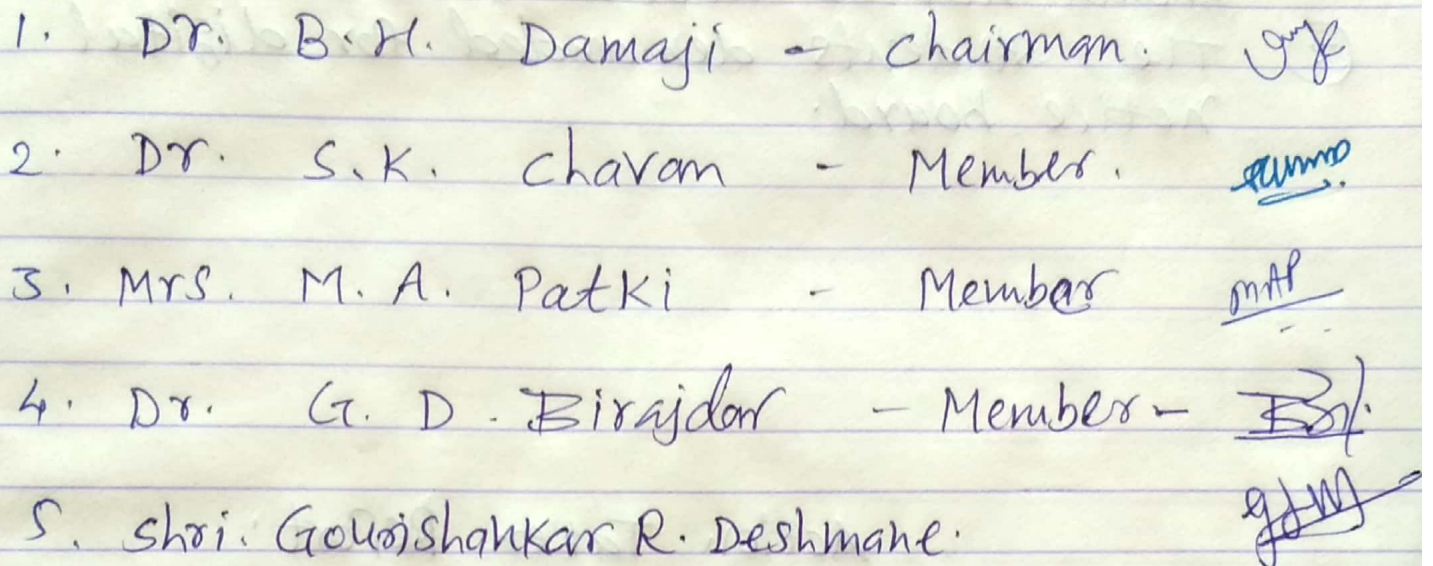 1. Dr. B.H. Damaji - Chairman.
2. Dr. S.K. Chavan - Member.
3. Mrs. M. A. Patki - Member MAP
4. Dr. G. D. Birajdar - Member -
5. Shri. Gourishankar R. Deshmane.